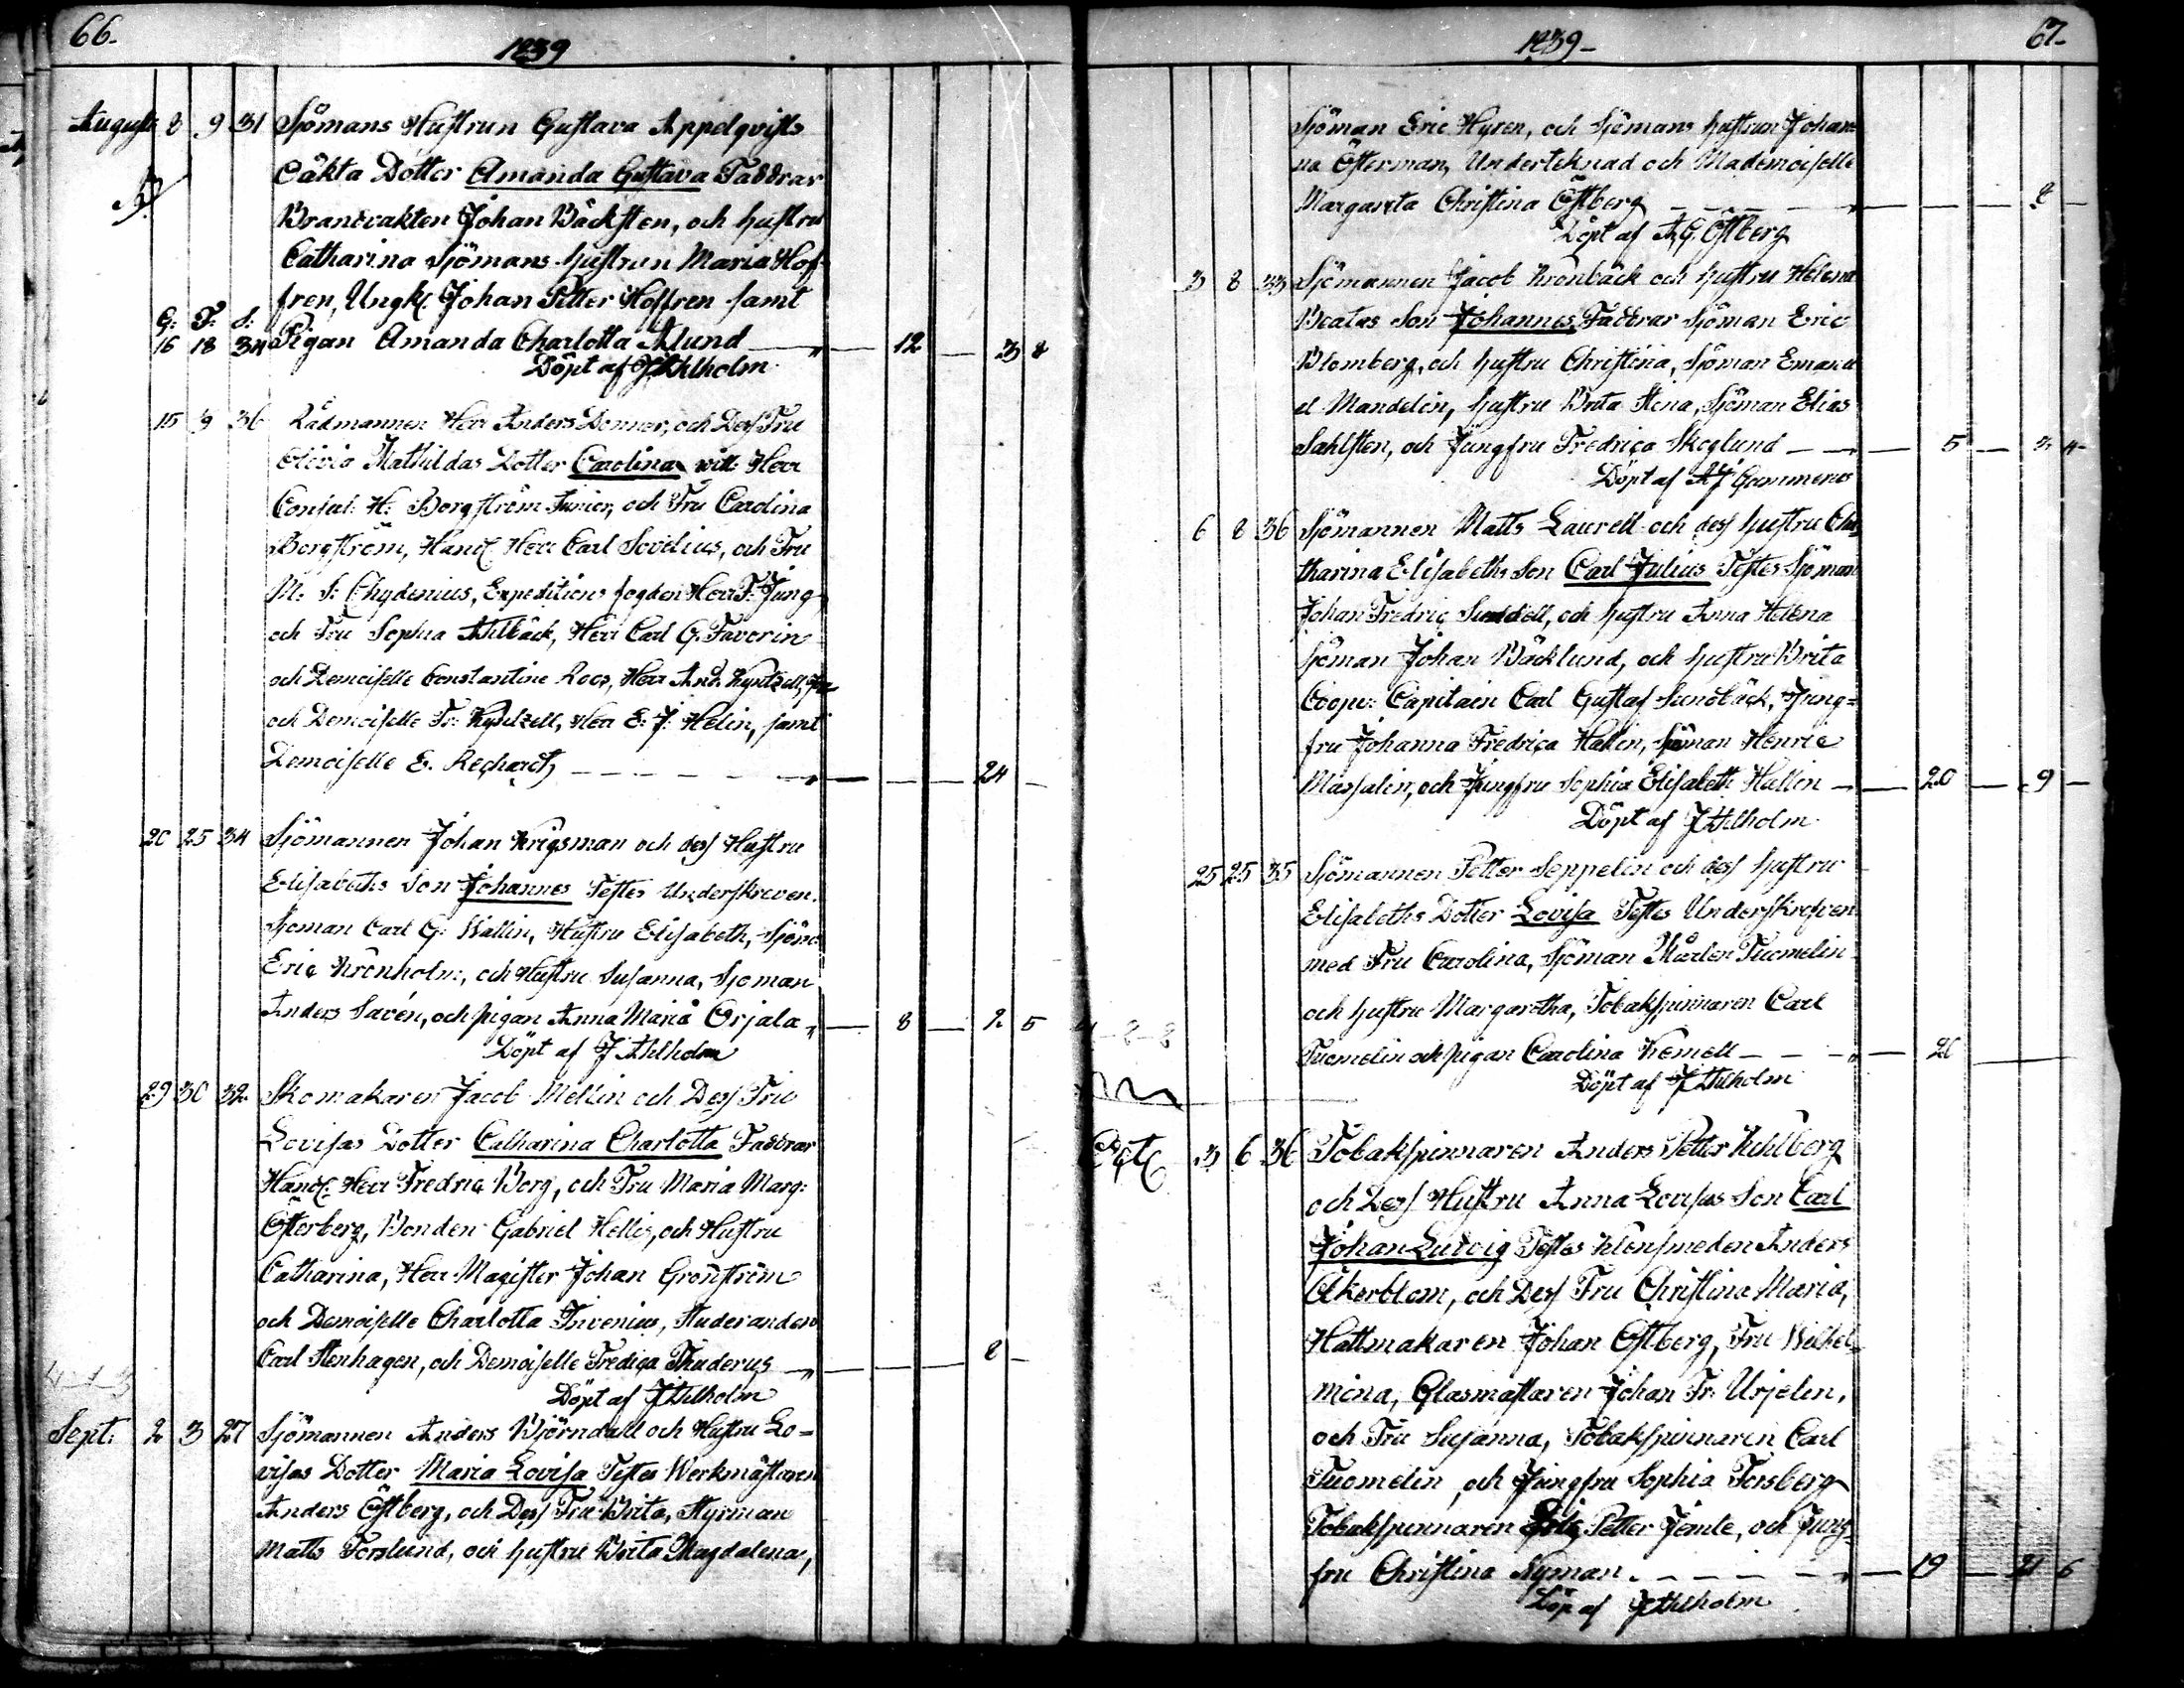 66.
1839
Augusti 8 9 31 Sjömans Hustrun Gustava Appelqvists
Oäkta Dotter Amanda Gustava Faddrar
Brandvakten Johan Bäcksten, och hustru
Catharina Sjömans hustrun Maria Hof-
fren, Ungk. Johan Petter Hoffren samt
G: F: S:
16 18 34 Pigan Amanda Charlotta Ålund 12 3 8
Döpt af J Ahlholm
15 9 36 Rådmannen Herr Anders Donner, och Dess Fru
Olivia Mathildas Dotter Carolina witt: Herr
Consul H: Borgström Junior, och Fru Carolina
Borgström, Handl Herr Carl Sovelius, och Fru
M: S: Chydenius, Expeditions fogden Herr F. Jung
och Fru Sophia Ahlbäck, Herr Carl G. Favorin
och Demoiselle Constantine Roos, Herr And. Kyntzell,
och Demoiselle Fr: Kyntzell, Herr E: J: Helin, samt
Demoiselle E. Rechardt 24
20 25 34 Sjömannen Johan Krigsman och dess Hustru
Elisabeths Son Johannes Testes Underskreven.
Sjoman Carl G: Wallin, Hustru Elisabeth, Sjöm:
Eric Krönholm, och Hustru Susanna, Sjoman
Anders Savén, och pigan Anna Maria Orjala 8 2 5
Döpt af J Ahlholm
29 30 32 Skomakaren Jacob Mellin och Dess Fru
Lovisas Dotter Catharina Charlotta Faddrar
Handl. Herr Fredric Borg, och Fru Maria Marg:
Österberg, Bonden Gabriel Hellis, och Hustru
Catharina, Herr Magister Johan Grönström
och Demoiselle Charlotta Invenius, Studeranden
Carl Stenhagen, och Demoiselle Fredrica Thuderus 8
Döpt af J Ahlholm
4-1-3
Sept: 2 3 27 Sjömannen Anders Björndahl och Hustru Lo=
visas Dotter Maria Lovisa Testes Werkmästaren
Anders Östberg, och Dess Fru Brita, Styrman
Matts Forslund, och hustru Brita Magdalena,
1839-
67-
Sjöman Eric Hyren, och Sjömans hustrun Johan=
na Österman, Underteknad och Mademoiselle
Margareta Christina Östberg 8
Döpt af A,G. Östberg
3 8 33 Sjömannen Jacob Kronbäck och hustru Helena
Beatas Son Johannes Faddrar Sjöman Eric
Blomberg, och hustru Christina, Sjöman Emanu
el Mandelin, hustru Brita Stena, Sjöman Elias
Sahlsten, och Jungfru Fredrica Skoglund 5 3 4
Döpt af
6 8 36 Sjömannen Matts Laurell och dess hustru Cha
tharina Elisabeths Son Carl Julius Testes Sjöman
Johan Fredric Sunddell, och hustru Anna Helena
Sjöman Johan Bäcklund, och hustru Brita
Coopv: Capitain Carl Gustaf Sundbäck, Jung=
fru Johanna Fredrica Hallin, Sjöman Henric
Massalin, och Jungfru Sophia Elisabeth Hallin 20 9
Döpt af J Ahlholm
25 25 35 Sjömannen Petter Seppelin och dess hustru
Elisabeths Dotter Lovisa Testes Underskrefven
med Fru Carolina, Sjöman Mårten Tuomelin
och hustru Margaretha, Tobakspinnaren Carl
4-2-2
Tuomelin och pigan Carolina Kemell 20
Döpt af J Ahlholm
Oct 3 6 36 Tobakspinnaren Anders Petter Kuhlberg
och Dess Hustru Anna Lovisas Son Carl
Johan Ludvig Testes Klensmeden Anders
Åkerblom, och Dess Fru Christina Maria,
Hattmakaren Johan Östberg, Fru Wilhel=
mina, Glasmästaren Johan Fr: Urjelin,
och Fru Susanna, Tobakspinnaren Carl
Tuomelin, och Jungfru Sophia Forsberg
Tobakspinnaren Eric Petter Jemte, och Jung=
fru Christina Nyman 19 21 6
Döp af J Ahlholm